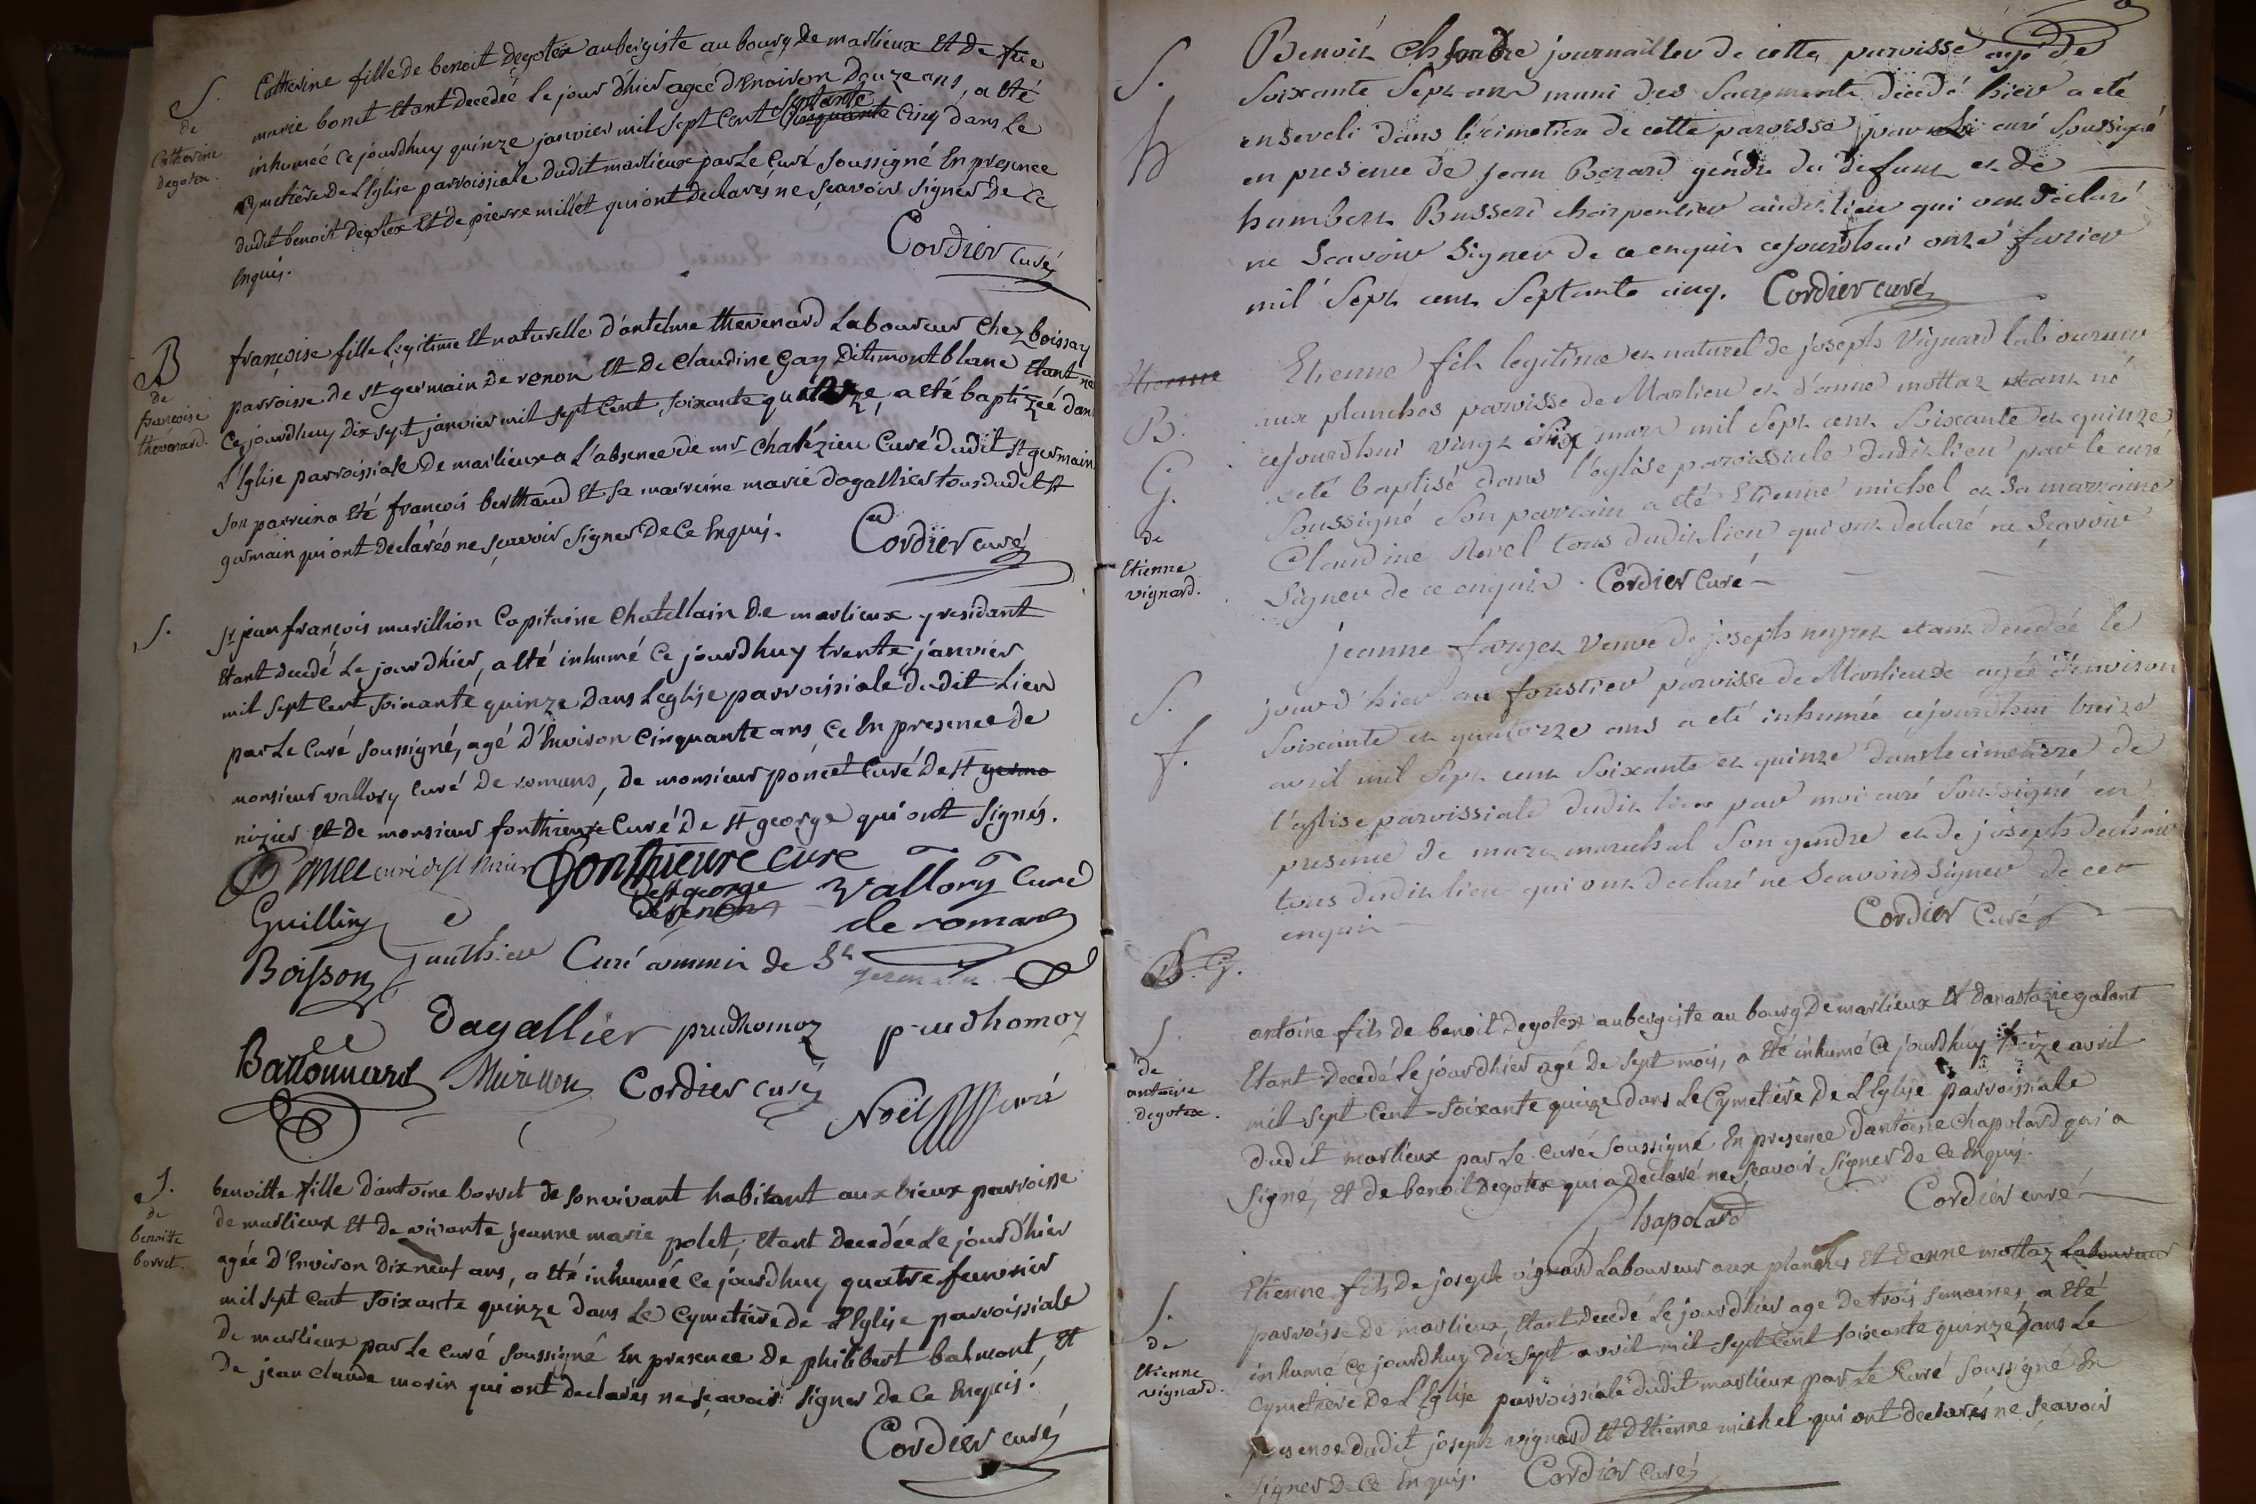 S.
de
Catherine
degotex
Catherine fille de benoit Degotex aubergiste au bourg de marlieux Et de feüe
marie bonet Etant decedée le jour d'hier agée d'Environ Douze ans, a Eté
inhumée Ce jourdhuy quinze janvier mil sept Cent Septante Cinq dans Le
Cymetière De L'Eglise parroissiale dudit marlieux par Le Curé soussigné En presence
dudit benoit Degotex Et de pierre millet qui ont Declarés ne sçavoir signer De Ce
Enquis.
Cordier Curé
B
de
françoise
thevenard.
françoise fille Legitime Et naturelle d'antelme thevenard Laboureur Chez boissay
parroisse de st germain de renon Et de Claudine Gay Dit montblanc Etant née
Ce jourdhuy dix sept janvier mil sept Cent soixante quinze, a eté baptizéé dans
L'Eglise parroissiale De marlieux a L'absence de mr Chalézieu Curé dudit st germain
son parrein a Eté françois berthaud Et sa marreine marie dagallier tous dudit st
germain qui ont declarés ne sçavoir signer De Ce Enquis.
Cordier curé
S.
sr jean françois murillion Capitaine Chatellain De marlieux y residant
Etant decedé Le jour d'hier, a Eté inhumé Ce jourdhuy trente janvier
mil sept Cent soixante quinze Dans L'eglise parroissiale dudit Lieu
par Le Curé soussigné, agé d'Environ Cinquante ans Ce En presence de
monsieur vallory Curé De romans, de monsieur poncet Curé De st germa
nizier Et De monsieur fonthieure Curé De st george qui ont signés.
Poncet curé de st nizier Gonthieure curé
de st george
de renon
Vallory Curé
de romans
Guilliny
Gauthier Curé commis de St
germain
Boisson
Dagallier prudhomoz prudhomoz
Battonnard Murillion Cordier curé
Noël curé
S.
de
benoitte
borret.
benoitte fille d'antoine borret de son vivant habitant aux vieux parroisse
de marlieux Et de vivante jeanne marie polet, Etant decedée Le jour d'hier
agée d'Environ dix neuf ans, a Eté inhumée Ce jourdhuy quatre fevrier
mil sept Cent soixante quinze dans Le Cymetière De L'Eglise parroissiale
De marlieux par Le Curé soussigné En presence De philibert balmont, Et
De jean claude morin qui ont Declarés ne sçavoir signer De Ce Enquis.
Cordier curé
S.
h
Benoit Chambre journaillier de cette paroisse agé de
soixante sept ans muni des Sacrements decedé hier a eté
enseveli dans le cimetiere de cette paroisse par curé soussigné
en presence de jean Berard gendre du defunt et de
humbert Busseri charpentier audit lieu qui ont declaré
ne scavoir signer de ce enquis cejourdhui onze fevrier
mil sept cent Septante cinq. Cordier curé
Etienne
B.
G.
de
Etienne
vignard.
Etienne fils legitime et naturel de joseph Vignard laboureur
aux planches paroisse de Marlieu et d'anne mottaz etant né
cejourdhui vingt six mars mil sept cent Soixante et quinze
a eté baptisé dans l'eglise paroissiale dudit lieu par le curé
Soussigné Son parrain a eté Etienne michel et Sa marraine
Claudine Revel tous dudit lieu qui ont declaré ne Scavoir
Signer de ce enquis. Cordier Curé
S.
f.
jeanne forgez veuve de joseph etant decedée le
jour d'hier au forestier paroisse de Marlieux agée d'environ
soixante et quatorze ans a eté inhumée cejourdhui treize
avril mil Sept cent Soixante et quinze dans le cimetiere de
l'eglise paroissiale dudit lieu par moi curé Soussigné en
presence de marc marechal Son gendre et de joseph
tous dudit lieu qui ont declaré ne Scavoir Signer de ce
enquis
Cordier Curé
B. G.
S.
de
antoine
degotex.
antoine fils de benoit degotex aubergiste au bourg De marlieux Et d'anastazie galant
Etant decedé Le jour d'hier agé De sept mois, a Eté inhumé Ce jourdhuy seize avril
mil sept Cent soixante quinze dans Le Cymetiére De L'Eglise parroissiale
dudit marlieux par Le Curé soussigné En presence D'antoine Chapolard qui a
signé, Et de benoit Degotex qui a declaré ne sçavoir signer De Ce Enquis.
Chapolard
Cordier curé
S.
de
Etienne
vignard.
Etienne fils De joseph vignard Laboureur aux planches Et d'anne mottaz Laboureur
parroisse de marlieux, Etant decedé Le jour d'hier agé De trois semaines, a Eté
inhumé Ce jourdhuy dix sept avril mil sept Cent soixante quinze dans Le
Cymetiere De L'Eglise parroissiale dudit marlieux par Le Curé soussigné En
presence dudit joseph vignard Et d'Etienne michel qui ont declarés ne sçavoir
signer De Ce Enquis. Cordier curé